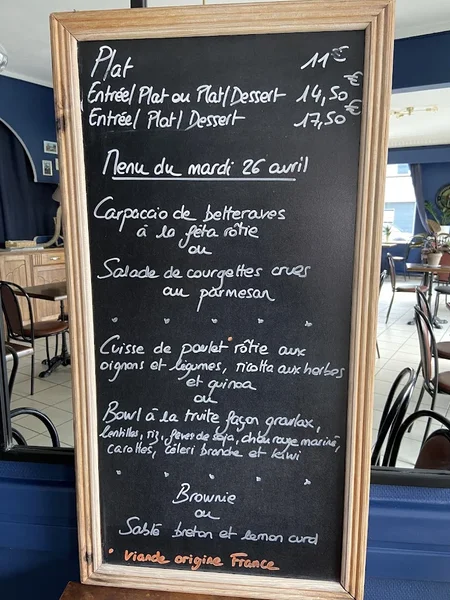 Plat 11€
Entrée/Plat ou Plat/Dessert 14,50€
Entrée/Plat/Dessert 17,50€
Menu du mardi 26 avril
Carpaccio de betteraves
à la féta rôtie
ou
Salade de courgettes crues
au parmesan
Cuisse de poulet* rôtie aux
oignons et légumes, ricotta aux herbes
et quinoa
ou
Bowl à la truite façon gravlax,
lentilles, riz, fèves de soja, chou rouge mariné,
carottes, céleri branche et kiwi
Brownie
ou
Sablé breton et lemon curd
* Viande origine France